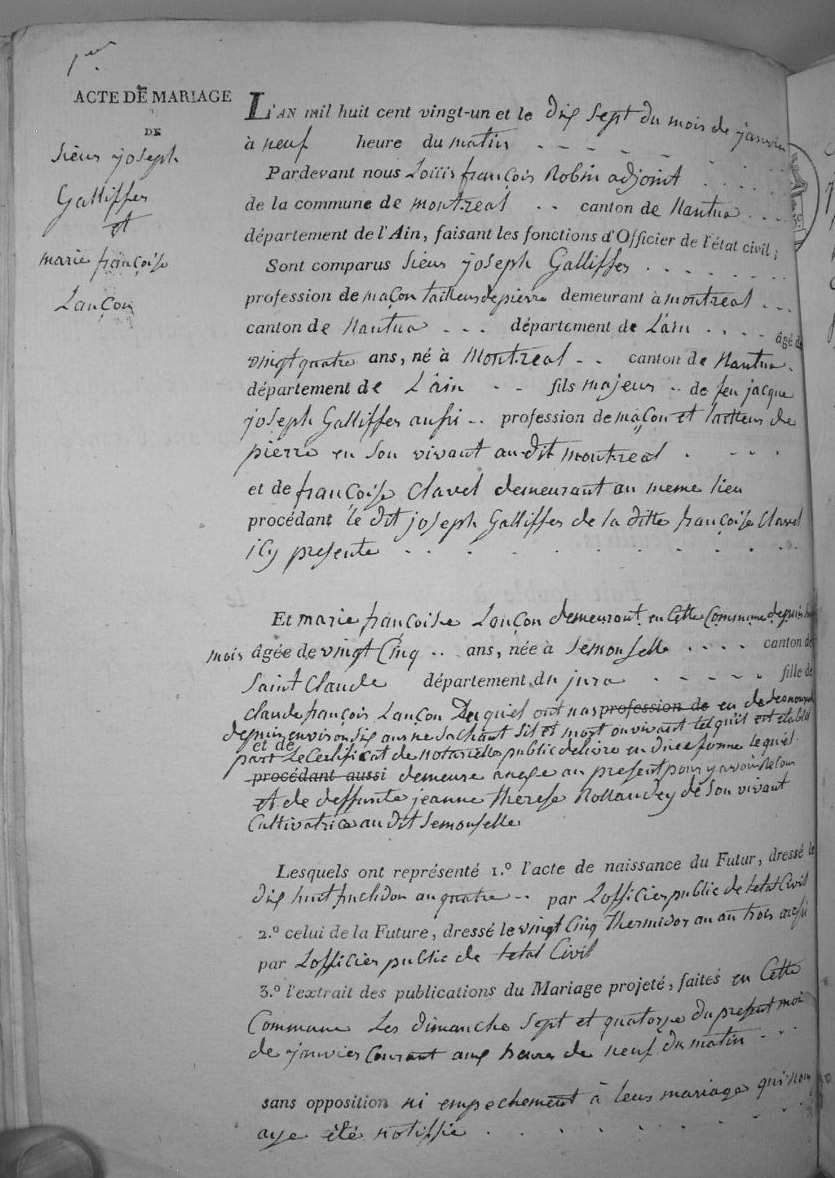 1er
ACTE DE MARIAGE
DE
Sieur joseph
Galliffer
et
marie françoise
Lançon
L'AN mil huit cent vingt-un et le dix sept du mois de janvier
à neuf heure du matin
Pardevant nous Louis françois Robin adjoint
de la commune de montreal canton de Nantua
département de l'Ain, faisant les fonctions d'Officier de l'état civil;
Sont comparus Sieur joseph Galliffer
profession de maçon tailleur de pierre demeurant à montreal
canton de Nantua département de L'ain âgé de
vingt quatre ans, né à Montreal canton de Nantua
département de L'ain fils majeur de feu jacque
joseph Galliffer aussi profession de maçon et tailleur de
pierre en son vivant au dit montreal
et de françoise Clavel demeurant au meme lieu
procédant le dit joseph Galliffer de la ditte françoise Clavel
icy presente
Et marie françoise Lançon demeurant en cette Commune depuis
mois âgée de vingt Cinq ans, née à Semouselle canton de
Saint Claude département du jura fille de
claude françois Lançon profession de
depuis environ dix ans ne sachant s'il est mort ou vivant tel qu'il est etablit
et de
part Le Certificat de notorieté public delivré en due forme lequel
procédant aussi demeure au present pour
et de deffunte jeanne therese Rollandey de Son vivant
Cultivatrice au dit Semouselle
Lesquels ont représenté 1.º l'acte de naissance du Futur, dressé le
dix huit fructidor an quatre par Lofficier public de letat Civil
2.º celui de la Future, dressé le vingt Cinq thermidor an trois aussi
par Lofficier public de letat Civil
3.º l'extrait des publications du Mariage projeté, faites en Cette
Commune Les dimanche Sept et quatorze du present moi
de janvier Courant aux heures de neuf du matin
sans opposition ni empechement à leur mariage qui nous
aye été notiffié